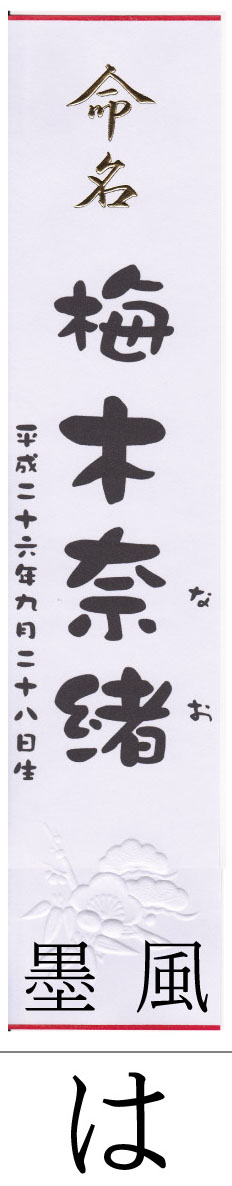 命名
梅木奈緒
なお
平成二十六年九月二十八日生
風墨
は